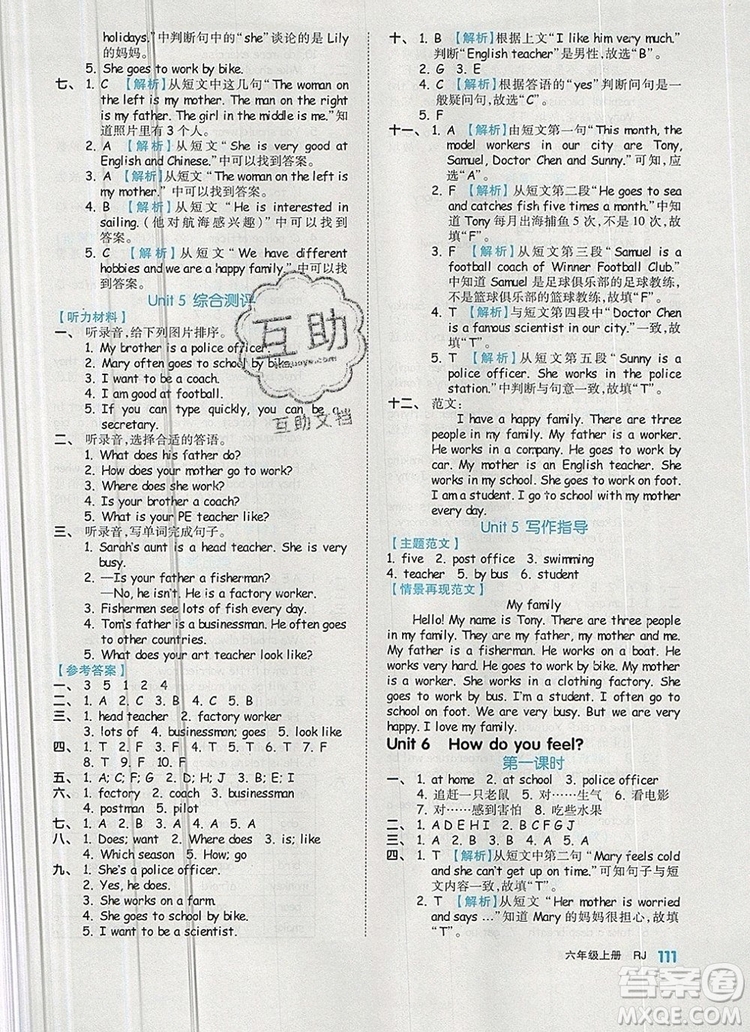 holidays.”中判断句中的“she”谈论的是 Lily
的妈妈。
5. She goes to work by bike.
七、1. C 【解析】从短文中这几句“The woman on
the left is my mother. The man on the right
is my father. The girl in the middle is me.”知
道照片里有 3 个人。
2. A 【解析】从短文“She is very good at
English and Chinese.”中可以找到答案。
3. A 【解析】从短文“The woman on the left
is my mother.”中可以找到答案。
4. B 【解析】从短文“He is interested in
sailing.(他对航海感兴趣)”中可以找到
答案。
5. C 【解析】从短文“We have different
hobbies and we are a happy family.”中可以
找到答案。
Unit 5 综合测评
【听力材料】
一、听录音,给下列图片排序。
1. My brother is a police officer.
2. Mary often goes to work by bike.
3. I want to be a coach.
4. I am good at football.
5. If you can type quickly, you can be a
secretary.
二、听录音,选择合适的答语。
1. What does his father do?
2. How does your mother go to work?
3. Where does she work?
4. Is your brother a coach?
5. What is your PE teacher like?
三、听录音,写单词完成句子。
1. Sarah's aunt is a head teacher. She is very
busy.
2. —Is your father a fisherman?
—No, he isn't. He is a factory worker.
3. Fishermen see lots of fish every day.
4. Tom's father is a businessman. He often goes
to other countries.
5. What does your art teacher look like?
【参考答案】
一、3 5 1 2 4
二、1. A 2. C 3. B 4. C 5. A
三、1. head teacher 2. factory worker
3. lots of 4. businessman; goes 5. look like
四、1. T 2. F 3. F 4. T 5. T 6. F 7. T
8. T 9. F 10. F
五、1. A; C; F; G 2. B; D; E; H
六、1. factory 2. coach 3. businessman
4. postman 5. pilot
七、1. A 2. B 3. A 4. A 5. A
八、1. Does; want 2. Where; does 3. is; like
4. Which season 5. How; go
九、1. She's a police officer.
2. Yes, he does.
3. She works on a farm.
4. She goes to school by bike.
5. I want to be a scientist.
十、1. B 【解析】根据上文“I like him very much.”
判断“English teacher”是男性,故选“B”。
2. G 3. E
4. C 【解析】根据答语的“yes”判断问句是一
般疑问句,故选“C”。
5. F
十一、1. A 【解析】由短文第一句“This month, the
model workers in our city are Tony,
Samuel, Doctor Chen and Sunny.”可知,应
选“A”。
2. F 【解析】从短文第二段“He goes to sea
and catches fish five times a month.”中
知道 Tony 每月出海捕鱼 5 次,不是六次,故
填“F”。
3. F 【解析】从短文第三段“Samuel is a
football coach of Winner Football Club.”
中知道 Samuel 是足球俱乐部的足球教练,
不是篮球俱乐部的篮球教练,故填“F”。
4. T 【解析】与短文第四段中“Doctor Chen
is a famous scientist in our city.”一致,故填
“T”。
5. T 【解析】从短文第五段“Sunny is a
police officer. She works in the police
station.”中判断与句意一致,故填“T”。
十二、范文:
I have a happy family. There are three
people in my family. My father is a worker. He
works in a company. He goes to work by
car. My mother is an English teacher. She
works in a school. She goes to work on foot.
I am a student. I go to school with my mother
every day.
Unit 5 写作指导
【主题范文】
1. five 2. post office 3. swimming
4. teacher 5. by bus 6. student
【情景再现范文】
My family
Hello! My name is Tony. There are four people
in my family. They are my father, my mother, my
sister and me. We all like reading books. My
father is a fisherman. He works on a boat. He
works very hard. He goes to work by bike. My
mother is a teacher. She works in a school. She
goes to work by bus. My sister and I are
students. I love science. I often go to school on
foot. My sister often goes to school on foot, too.
We are busy every day. But we are very
happy. I love my family.
Unit 6 How do you feel?
第一课时
一、1. at home 2. at school 3. police officer
4. 追赶一只老鼠 5. 对……生气 6. 看电影
7. 对……感到害怕 8. 吃些水果
二、1. A D E H I 2. B C F G J
三、1. A 2. B 3. C 4. B 5. C
四、1. T 【解析】从短文中第二句“Mary feels cold
and she can't get up on time.”可知句子与短
文内容一致,故填“T”。
2. T 【解析】从短文“Her mother is worried
and says ...”知道 Mary 的妈妈很担心,故填
“T”。
六年级上册 RJ 111
互助
互助文档
答案圈
MXQE.COM